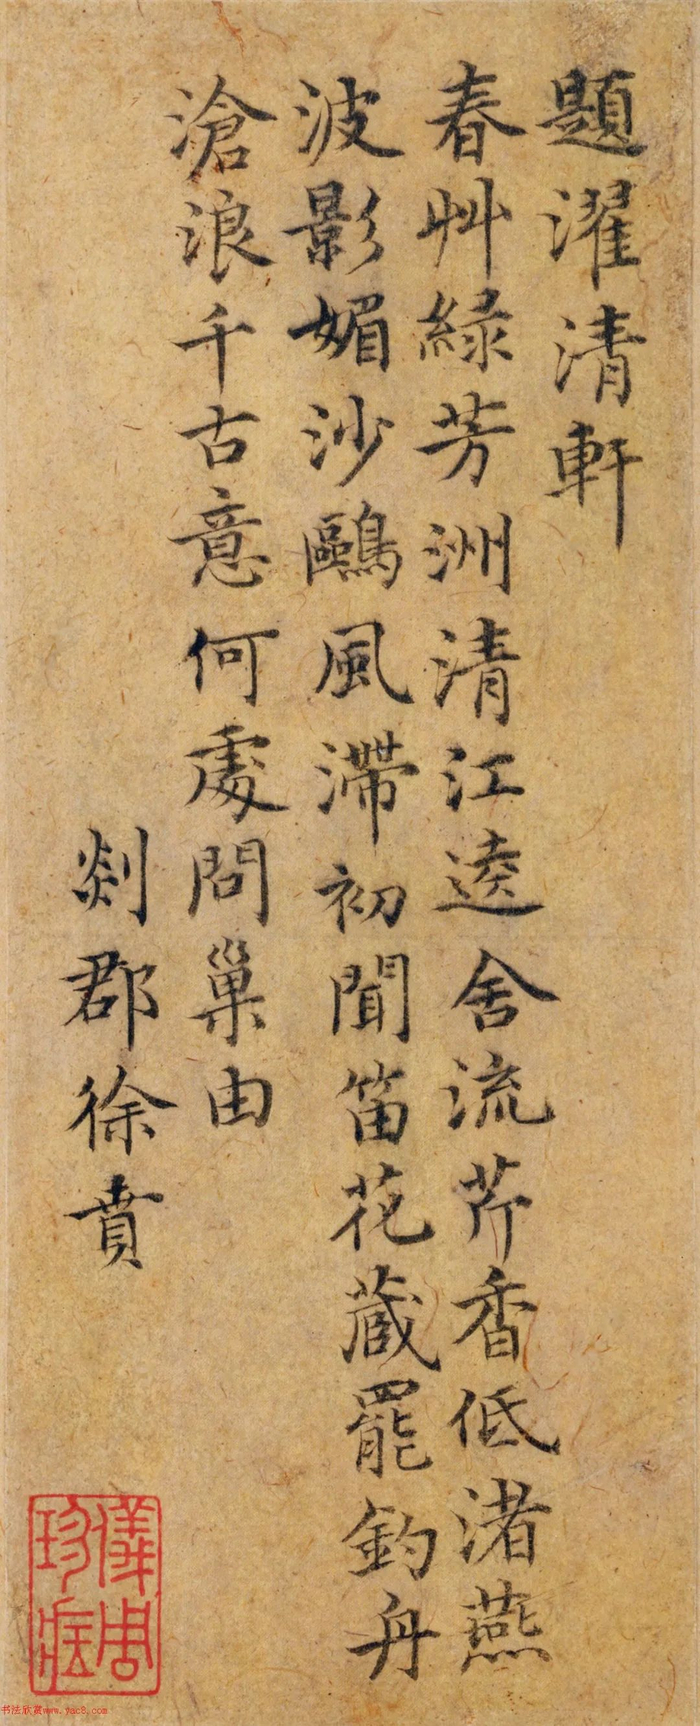 題濯清軒
春艸綠芳洲清江遶舍流芹香低渚燕
波影媚沙鷗風滯初聞笛花蔵罷釣舟
滄浪千古意何處問巢由
剡郡徐賁
儀周珍蔵
书法欣赏www.yac8.com